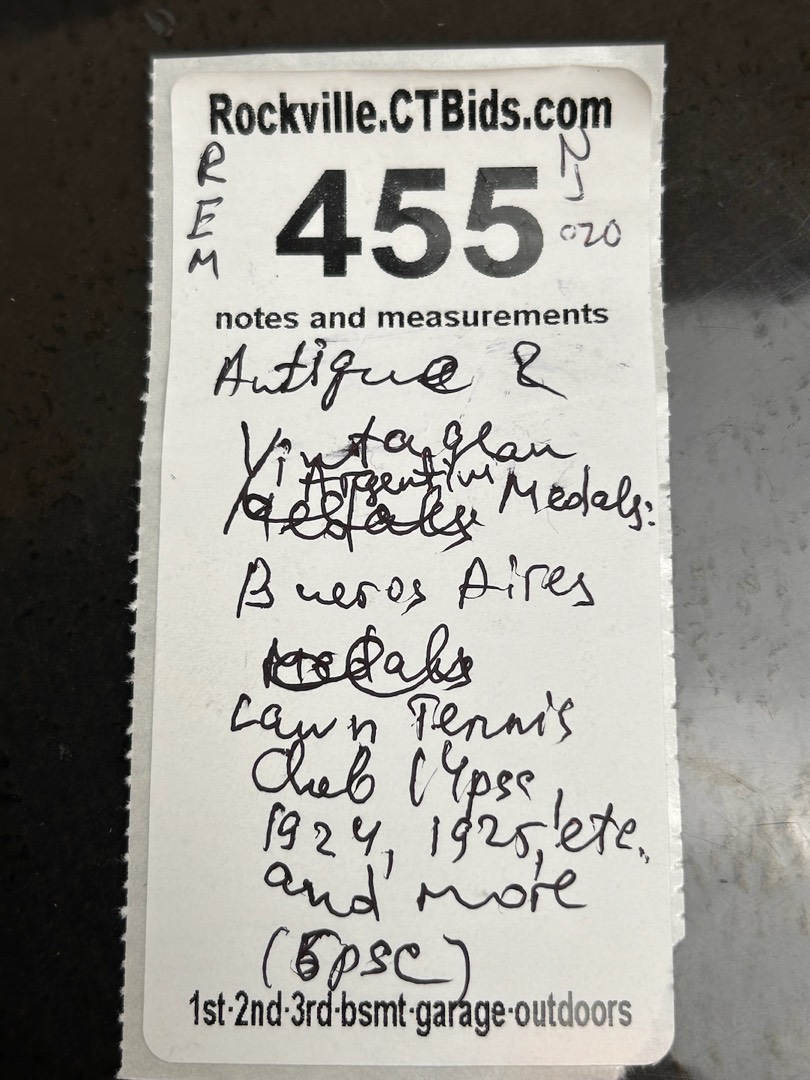 Rockville.CTBids.com
REM
455
NJ
020
notes and measurements
Antique &
Vintagean
Argentin Medals:
Medals
Bueros Aires
Medals
Lawn Tennis
Club (4psc,
1924, 1925, etc.
and more
(5psc)
1st·2nd·3rd·bsmt·garage·outdoors